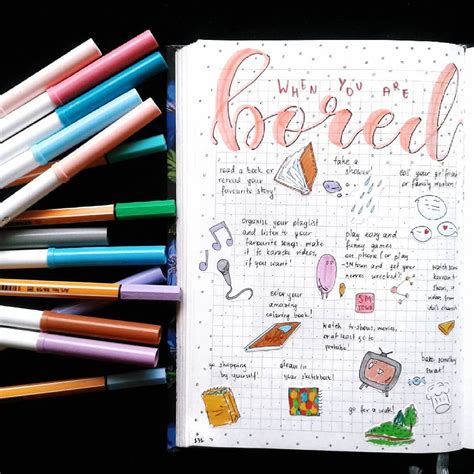 WHEN YOU ARE
bored
read a book or
reread your
favourite story!
take a
shower
or family
organise your playlist
and listen to your
favourite songs. make
it to karaoke videos,
if you want!
play easy and
funny games
on phone (or play
SM Town and get your
nerves wrecked)
SM
TOWN
color your
amazing
coloring book!
watch tv-shows, movies,
or at least go to
youtube!
go shopping
by yourself!
draw in
your sketchbook!
bake something
go for a walk!